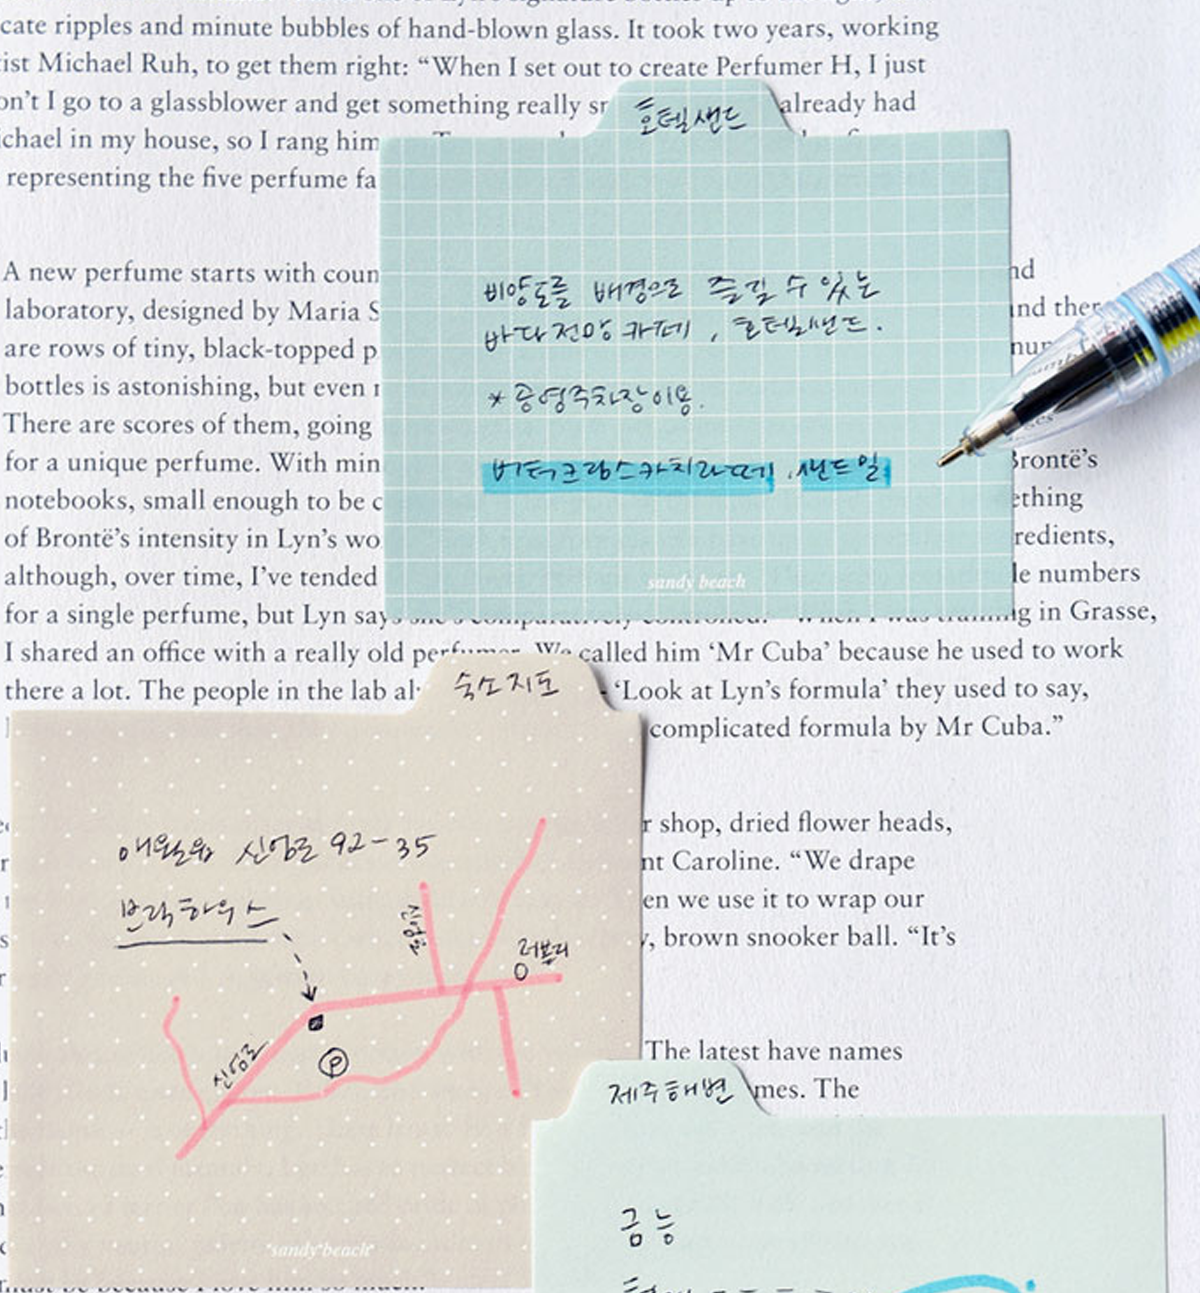 cate ripples and minute bubbles of hand-blown glass. It took two years, working
ist Michael Ruh, to get them right: “When I set out to create Perfumer H, I just
on’t I go to a glassblower and get something really already had
chael in my house, so I rang him
representing the five perfume fa
A new perfume starts with coun
laboratory, designed by Maria S nd ther
are rows of tiny, black-topped p
bottles is astonishing, but even
There are scores of them, going
for a unique perfume. With min Brontë’s
notebooks, small enough to be c ething
of Brontë’s intensity in Lyn’s wo redients,
although, over time, I’ve tended le numbers
for a single perfume, but Lyn says she’s comparatively controlled. “When I was training in Grasse,
I shared an office with a really old perfumer. We called him ‘Mr Cuba’ because he used to work
there a lot. The people in the lab ‘Look at Lyn’s formula’ they used to say,
complicated formula by Mr Cuba.”
r shop, dried flower heads,
nt Caroline. “We drape
en we use it to wrap our
, brown snooker ball. “It’s
The latest have names
mes. The
호텔샌드
비양도를 배경으로 즐길 수 있는
바다전망 카페, 호텔샌드.
* 공영주차장이용.
버터크림스카치라떼, 샌드밀
sandy beach
숙소지도
애월읍 신엄로 92-35
브릭하우스
신엄로
러봄리
P
sandy beach
제주해변
금능